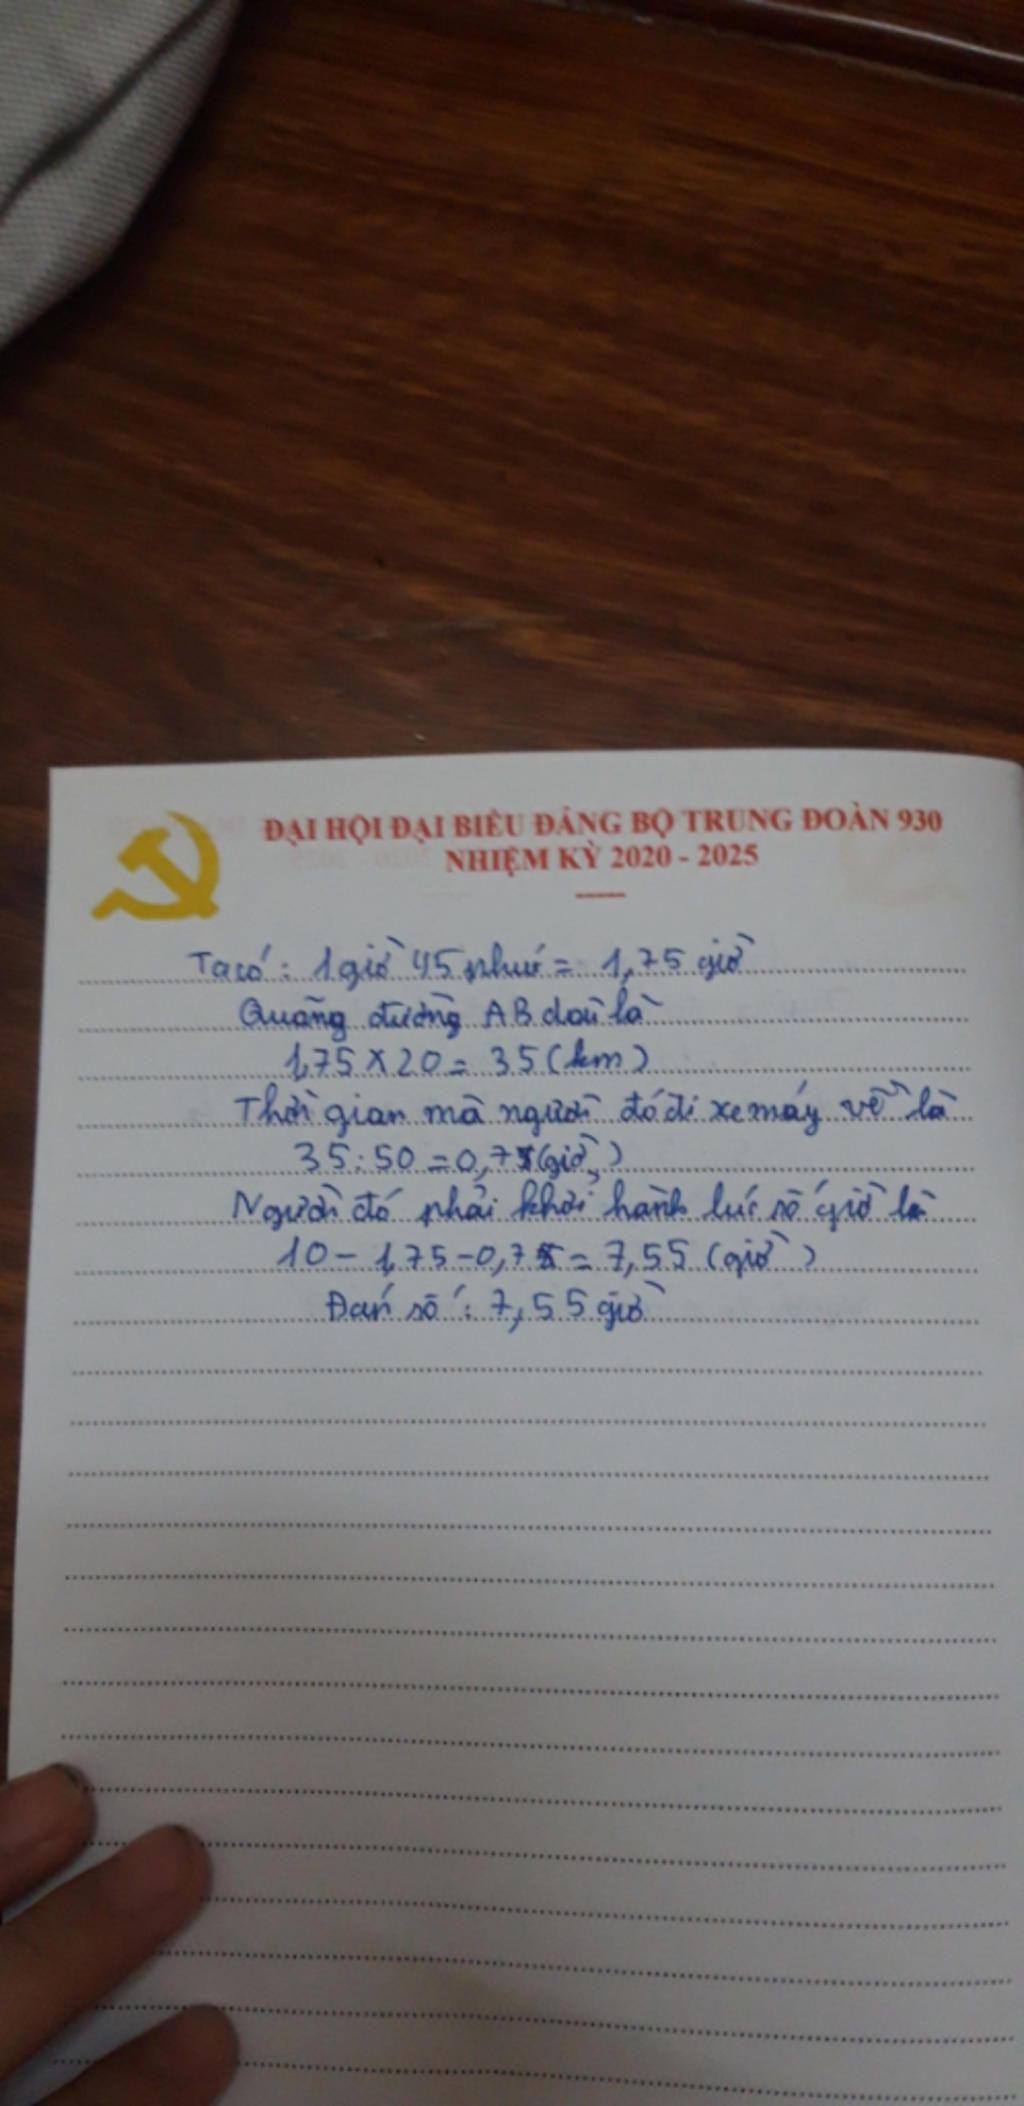 ĐẠI HỘI ĐẠI BIỂU ĐẢNG BỘ TRUNG ĐOÀN 930
NHIỆM KỲ 2020 - 2025
Ta có: 1 giờ 45 phút = 1,75 giờ
Quãng đường AB dài là
1,75 x 20 = 35 (km)
Thời gian mà người đó đi xe máy về là
35 : 50 = 0,7 (giờ)
Người đó phải khởi hành lúc số giờ là
10 - 1,75 - 0,7 = 7,55 (giờ)
Đáp số: 7,55 giờ